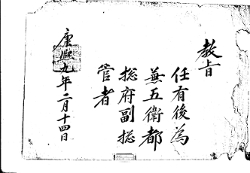 教旨
任有後為
兼五衛都
摠府副摠
管者
康熙九年二月十四日